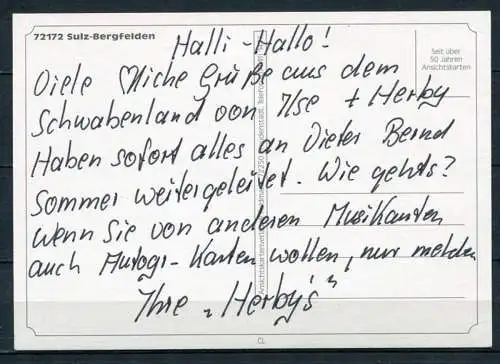 72172 Sulz-Bergfelden
Halli-Hallo!
Seit über
50 Jahren
Ansichtskarten
Viele ♡liche Grüße aus dem
Schwabenland von Ilse + Herby
Haben sofort alles an Dieter Bernd
Sommer weitergeleitet. Wie gehts?
Wenn Sie von anderen Musikanten
auch Autogr-Karten wollen, nur melden
Ihre „Herby's"